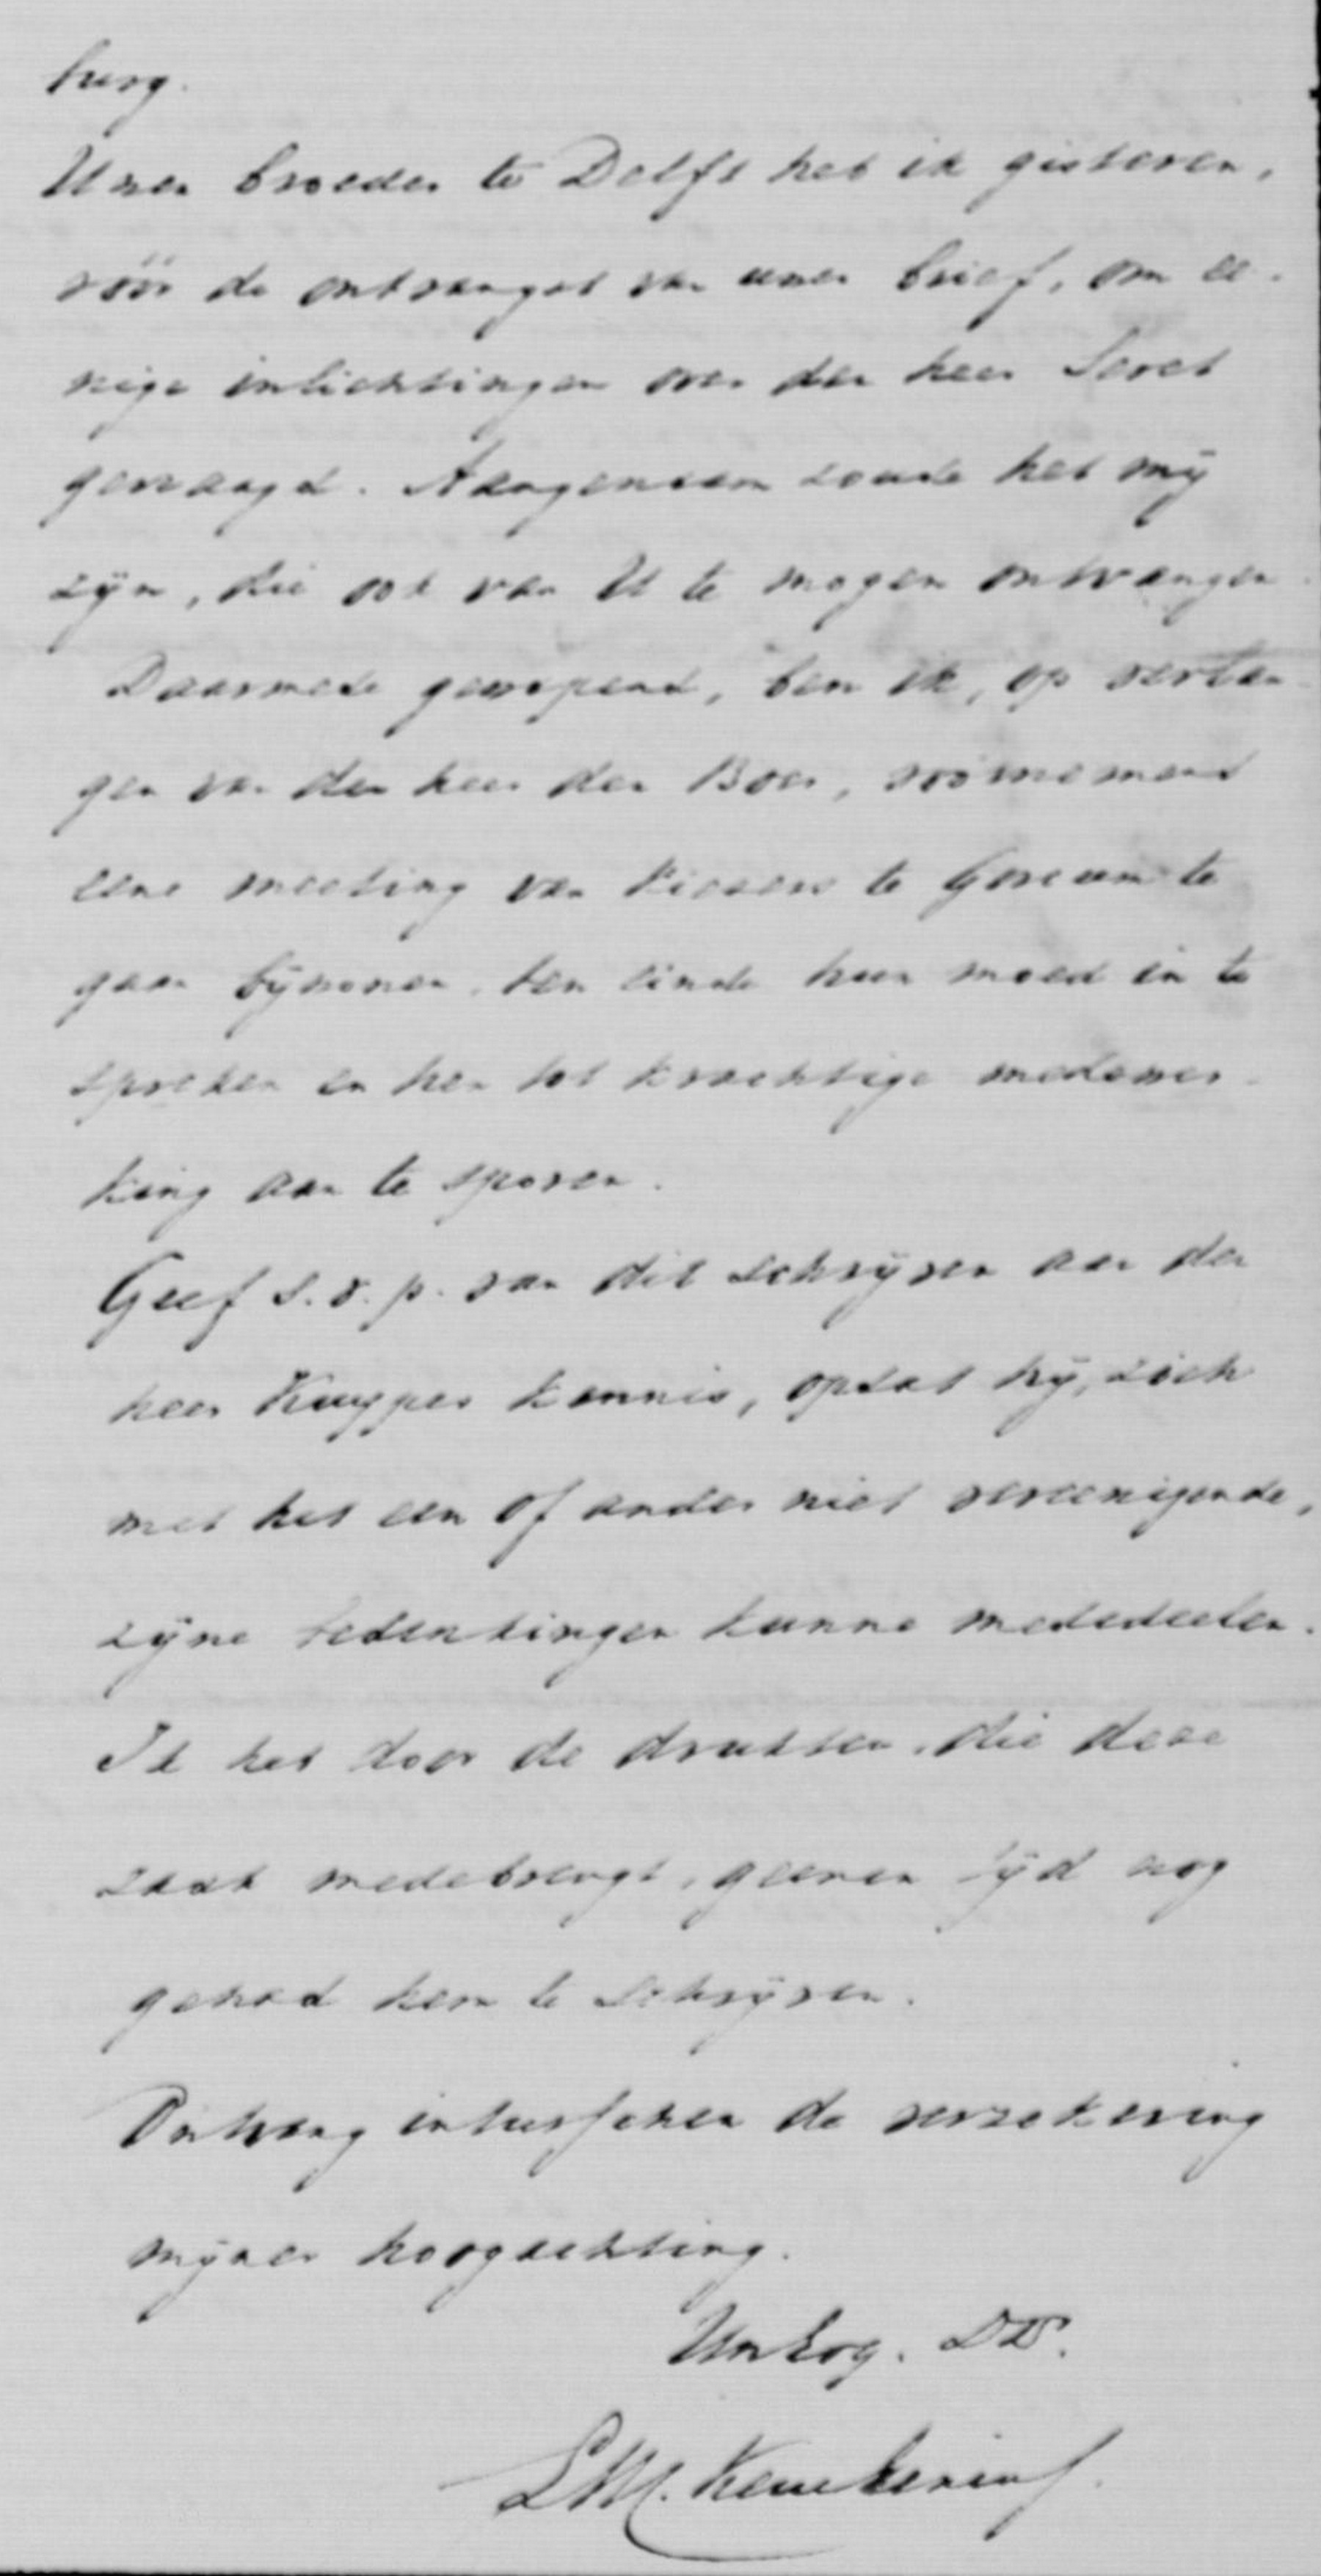 burg.
Uwen broeder te Delft heb ik gisteren,
vóór de ontvangst van uwen brief, om ee-
nige inlichtingen over den heer Seret
gevraagd. Aangenaam zoude het mij
zijn, die ook van U te mogen ontvangen.
Daarmede gewapend, ben ik, op verlan-
gen van den heer den Boer, voornemens
eene meeting van kiezers te Gorcum te
gaan bijwonen, ten einde hun moed in te
spreken en hen tot krachtige medewer-
king aan te sporen.
Geef s.v.p. van dit schrijven aan den
heer Kuyper kennis, opdat hij, zich
met het een of ander niet vereenigende,
zijne bedenkingen kunne mededeelen.
Ik heb door de drukten, die deze
zaak medebrengt, geenen tijd nog
gehad hem te schrijven.
Ontvang intusschen de verzekering
mijner hoogachting.
UwEog. DD.
LM. Keuchenius.